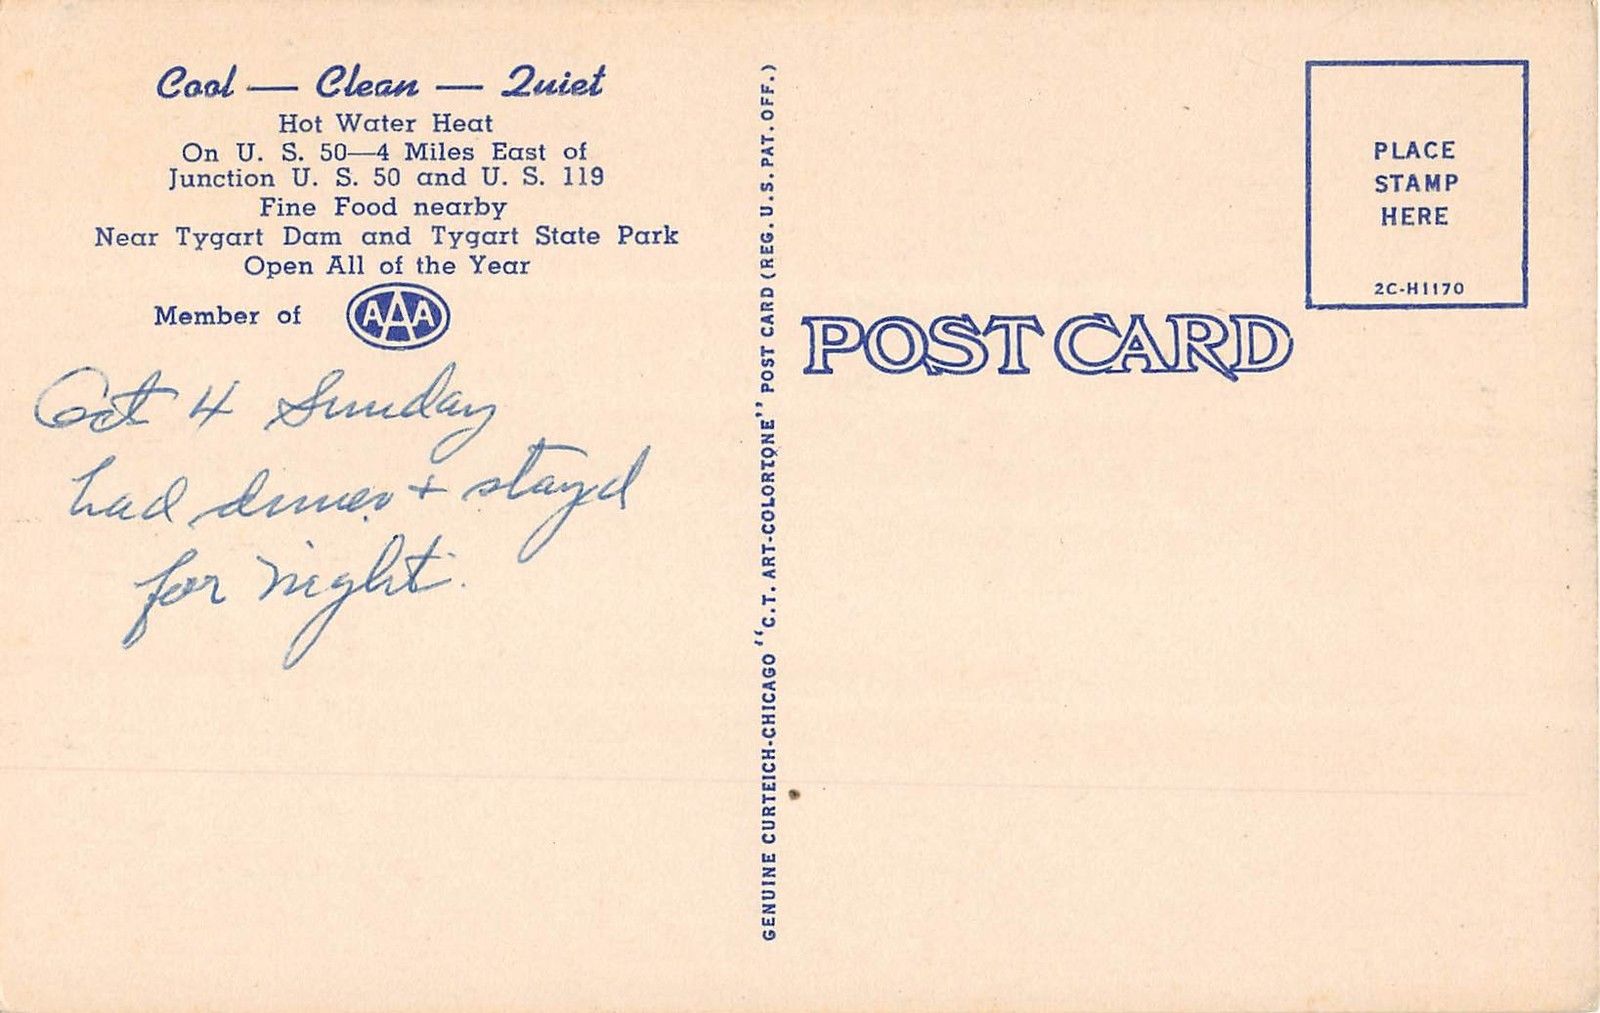 Cool — Clean — Quiet
Hot Water Heat
On U. S. 50—4 Miles East of
Junction U. S. 50 and U. S. 119
Fine Food nearby
Near Tygart Dam and Tygart State Park
Open All of the Year
Member of AAA
Oct 4 Sunday
had dinner + stayd
for night.
GENUINE CURTEICH-CHICAGO "C.T. ART-COLORTONE" POST CARD (REG. U.S. PAT. OFF.)
POST CARD
PLACE
STAMP
HERE
2C-H1170